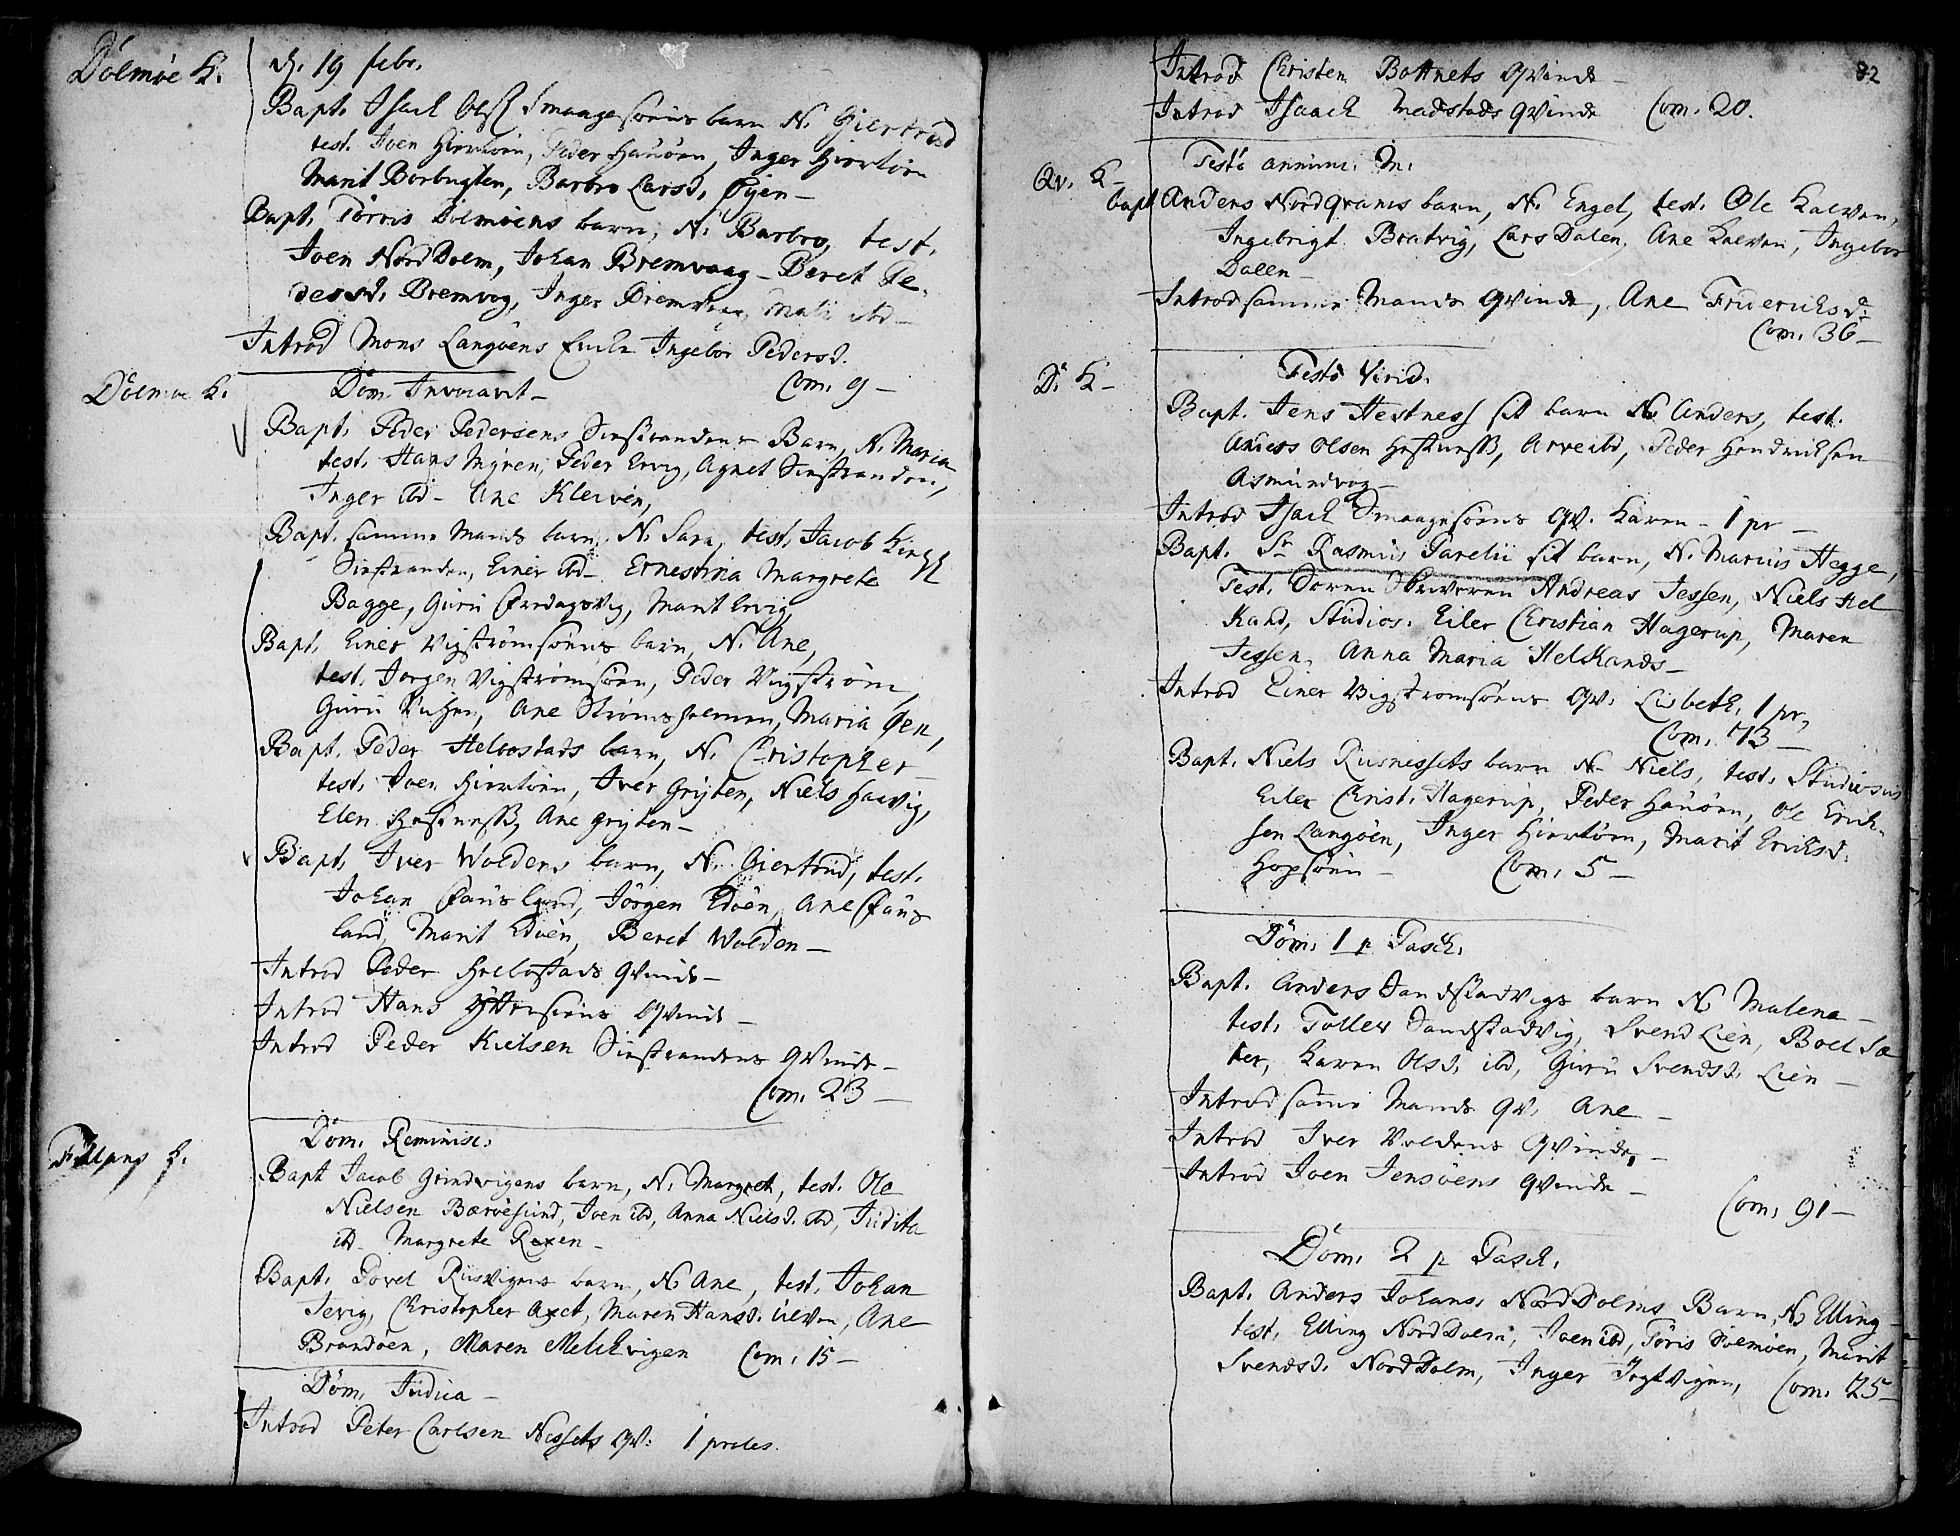 Dolmøe K. d. 19 febr.
Bapt. Isach Olss Smaagesøens barn N. Giertrud
test. Joen Hiertøen, Peder Hauøen, Inger Hiertøen
Marit Borbugten, Barbro Larsd. Øyen –
Bapt. Torris Dolmøens barn, N. Barbro, test.
Joen NordDolm, Johan Bremvaag – Beret Pe-
dersd. Bremvog, Inger Bremvog, Mali ibd –
Introd Mons Langøens Encke Ingebor Pedersd.
Com. 9 –
Dolmøe K. Dom. Invocavit –
Bapt. Peder Pedersens Sinstrandens Barn, N. Maria
test. Hans Myren, Peder Ervig, Agnet Sinstranden,
Inger ibd – Ane Kleiven,
Bapt. samme Mands barn, N. Sara, test. Jacob
Sinstranden, Einer ibd – Ernestina Margrete
Bagge, Guru Ferdagsvig, Marit Ervig,
Bapt. Einer Vigstrømsøens barn, N. Ane,
test. Jorgen Vigstrømsøen, Peder Vigstrøm,
Guru, Ane Strømsholmen, Maria Øen,
Bapt. Peder Helbostads barn, N. Christopher
test. Joen Hiertøen, Iver Gryten, Niels Havig,
Elen Hestness, Ane Gryten –
Bapt. Iver Woldens barn, N. Giertrud, test.
Johan Fausland, Jörgen Edøen, Ane Faus
land, Marit Edøen, Beret Wolden –
Introd Peder Helbostads Qvinde –
Introd Hans Qvinde –
Introd Peder Kielsen Sinstrandens Qvinde –
Com. 23 –
Fillens K. Dom. Reminisc:
Bapt Jacob Grindvigens barn, N. Margret, test. Ole
Nielsen Barøesund, Joen ibd, Anna Nielsd. ibd, Judita
ibd – Margrete Roxen –
Bapt. Povel Rusvigens barn, N. Ane, test. Johan
Sevig, Christopher Axet, Maren Hansd. Ulven, Ane
Brandøen, Maren Melckvigen Com. 15 –
Dom. Judica –
Introd Peter Carlsen Nessets Qv: 1 proles.
82
Introd Christen Bottnets Qvinde –
Introd Isaach Madstads Qvinde Com. 20.
Qv. K – Festo annunc. M.
bapt Anders NordQvanes barn, N. Engel, test. Ole Kalven,
Ingebrigt Bratvig, Lars Dalen, Ane Kalven, Ingebor
Dalen –
Introd samme Mands Qvinde, Ane Friderichsd:
Com. 36 –
D. K – Festo Virid.
Bapt. Jens Hestness sit barn N. Anders, test.
Anders Olsen Hestness, Arve ibd, Peder Hendrichsen
Asmundvog –
Introd Isach Smaagesøens Qv. Karen – 1 pr –
Bapt. Sr Rasmus Parelii sit barn, N. Marius Hegge,
Test. Soren Andreas Jessen, Niels Hel
Kand, Studios. Eiler Christian Hagerup, Maren
Jessen, Anna Maria Helkands –
Introd Einer Vigstromsøens Qv. Lisbeth, 1 pr,
Com. 73 –
Bapt. Niels Rusnessets barn N – Niels, test. Studiosus
Eiler Christ. Hagerup, Peder Hauøen, Ole Erich-
sen Langøen, Inger Hiertøen, Marit Erichsd.
Hopsøen – Com. 5 –
Dom. 1 p Pasch.
Bapt. Anders Sandstadvigs barn N. Malena –
test. Toller Sandstadvig, Svend Lien, Boel Sæ
ter, Karen Olsd. ibd, Guru Svendsd. Lien –
Introd samme Mands Qv. Ane –
Introd Iver Voldens Qvinde, –
Introd Joen Jensøens Qvinde –
Com. 91 –
Dom. 2 p Pasch.
Bapt. Anders Johans. NordDolms Barn, N. Elling –
test. Elling NordDolm, Joen ibd, Toris Dolmøen, Marit
Svendsd. NordDolm, Inger Jogtvigen, Com. 25 –